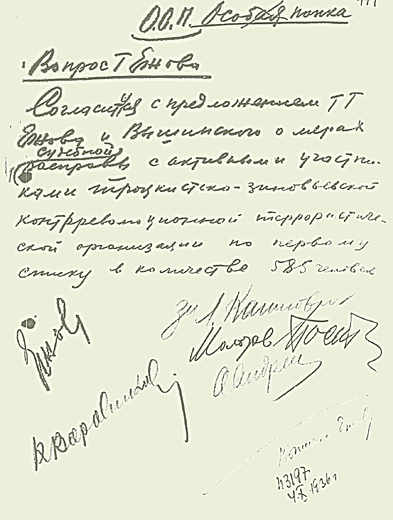 О.О.П. Особая папка
Вопрос Т Ежова
Согласиться с предложением ТТ
Ежова и Вышинского о мерах
судебной
расправы с активными участни-
ками троцкистско-зиновьевской
контрреволюционной террористиче-
ской организации по первому
списку в количестве 585 человек
за Л Каганович
Ежов
Молотов Постыш
ААндреев
К Ворошилов
4.X.1936г.